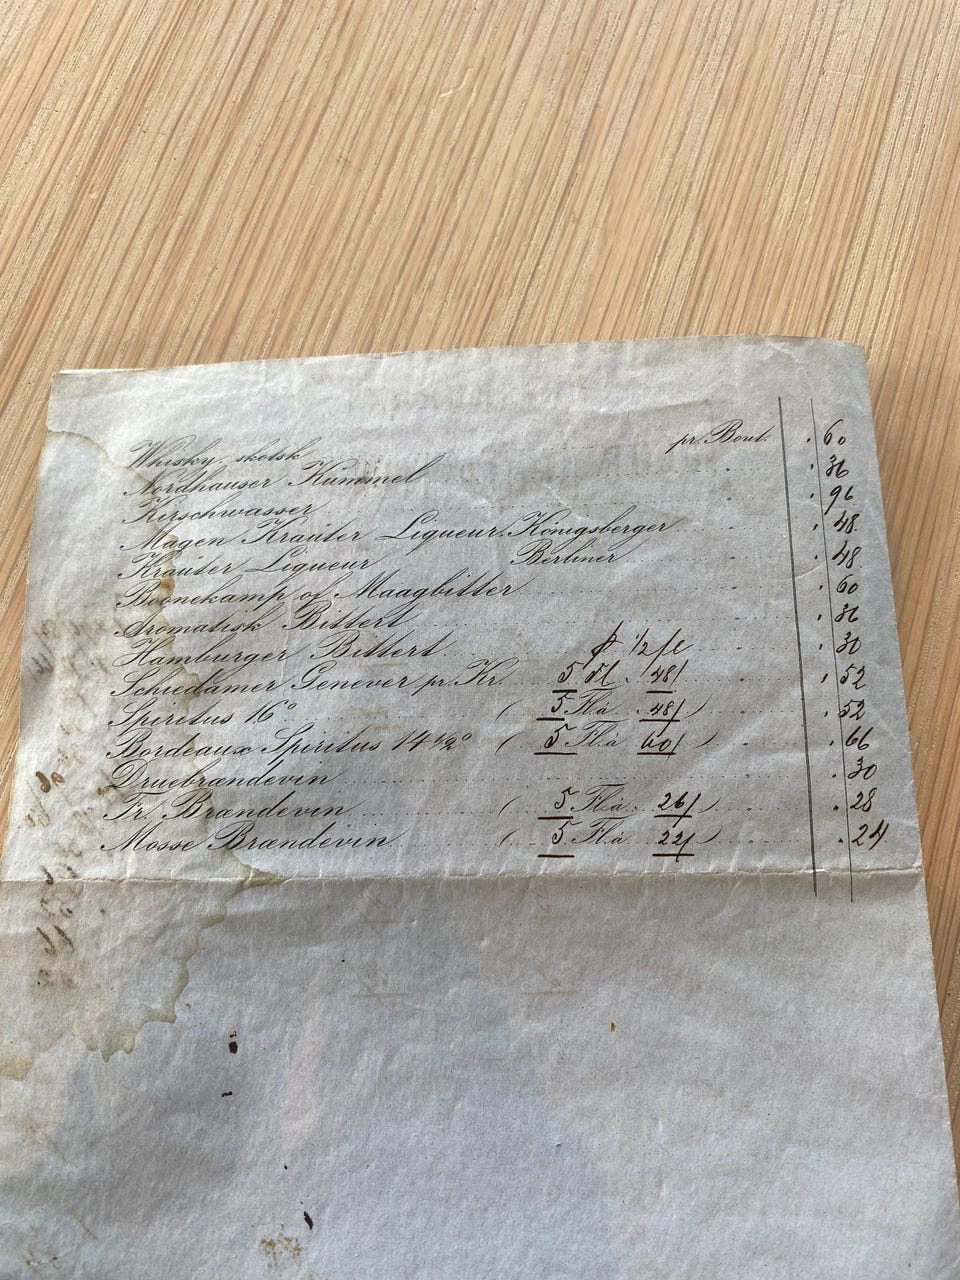 Whisky skotsk pr. Bout. . 60
Nordhauser Kümmel . 36
Kirschwasser . 96
Magen Kräuter Liqueur. Königsberger . 48
Kräuter Liqueur Berliner . 48
Boonekamp of Maagbitter . 60
Aromatisk Bittert . 36
Hamburger Bittert 1/2 fl . 30
Schiedamer Genever pr. Kr. 5 Fl. 48/ . 52
Spiritus 16° ( 5 Fl. à 48/ ) . 52
Bordeaux Spiritus 14 1/2° ( 5 Fl. à 60/ ) . 66
Druebrændevin . 30
Fr. Brændevin ( 5 Fl. à 26/ ) . 28
Mosse Brændevin ( 5 Fl. à 22/ ) . 24